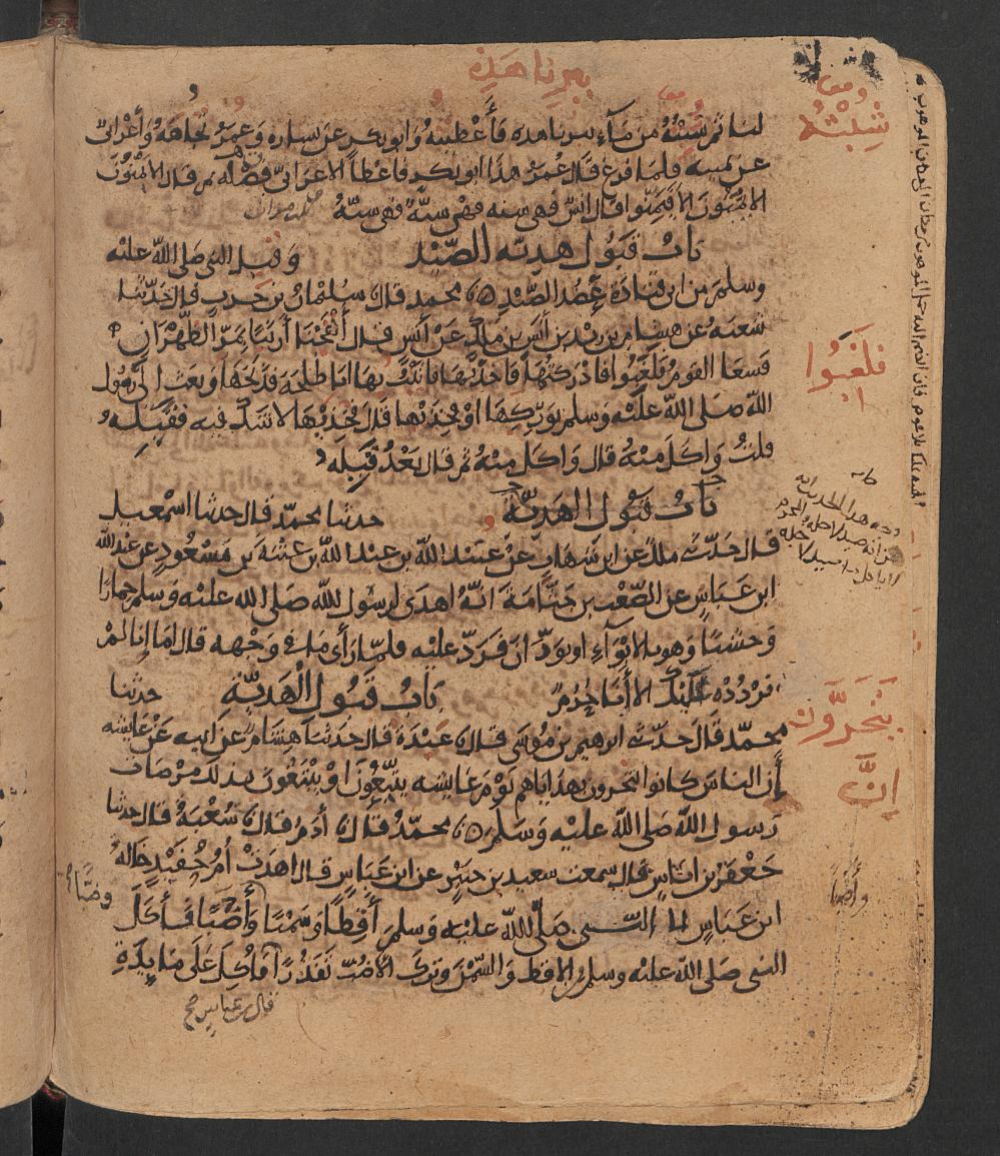 ببرنا هذه
لنا ثم شبته من ماء بيرنا هذه فأعطيته وابو بكر عن يساره وعمر تجاهه وأعرابي
عن يمينه فلما فرغ قال عمر هذا ابو بكر فاعطا الاعرابي فضله ثم قال الايمنون
الايمنون الا فيمنوا قال انس فهي سنه فهي سنة فهي سنة
باب قبول هدية الصيد وقبل النبي صلى الله عليه
وسلم من ابي قتادة عضد الصيد محمد قال سليمان بن حرب قال حدثنا
شعبه عن هشام بن زيد بن أنس بن مالك عن أنس قال أنفجنا أرنبا بمر الظهران
فسعا القوم فلغبوا فادركتها فاخذتها فاتيت بها ابا طلحة فذبحها وبعث الى رسول
الله صلى الله عليه وسلم بوركها او فخذيها قال فخذيها لا شك فيه فقبله
قلت واكل منه قال واكل منه ثم قال بعد قبله
باب قبول الهدية حدثنا محمد قال حدثنا اسمعيل
قال حدثني ملك عن ابن شهاب عن عبيد الله بن عبد الله بن عتبة بن مسعود عن عبد الله
ابن عباس عن الصعب بن جثامة انه اهدى لرسول الله صلى الله عليه وسلم حمارا
وحشيا وهو بالابواء او بودان فرد عليه فلما رأى ما في وجهه قال اما إنا لم
نردده عليك الا أنا حرم باب قبول الهدية حدثنا
محمد قال حدثني ابرهيم بن موسى قال عبدة قال حدثنا هشام عن ابيه عن عايشه
أن الناس كانوا يتحرون بهداياهم يوم عايشه يتبعون او يبتغون بذلك مرضات
رسول الله صلى الله عليه وسلم محمد قال آدم قال شعبة قال حدثنا
جعفر بن اياس قال سمعت سعيد بن جبير عن ابن عباس قال اهدت أم حفيد خالة
ابن عباس الى النبي صلى الله عليه وسلم أقطا وسمنا وأضبا فأكل
النبي صلى الله عليه وسلم الاقط والسمن وترك الأضب تقذرا فأكل على مايدة
قال بن عباس صح
فلغبوا
يتحرون
إن
وأضبا
وضبا